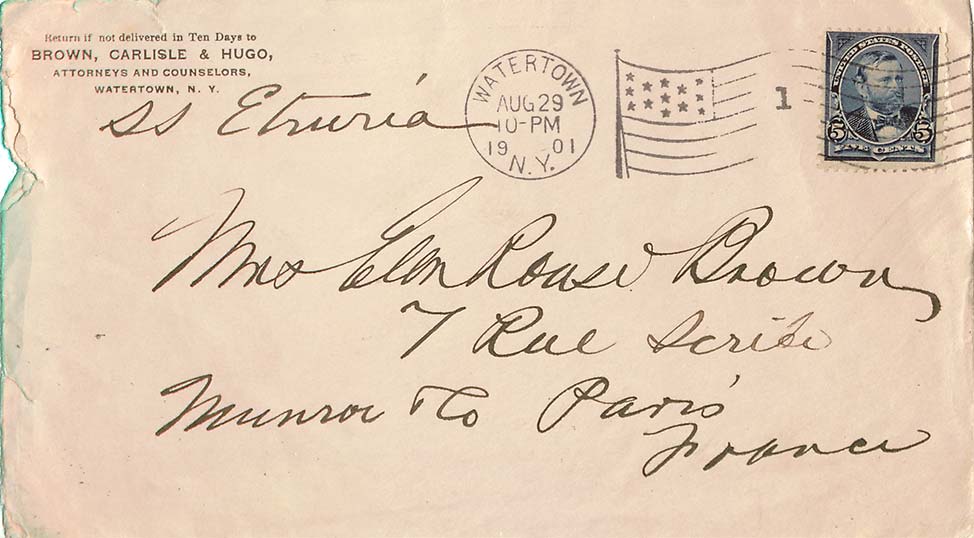 Return if not delivered in Ten Days to
BROWN, CARLISLE & HUGO,
ATTORNEYS AND COUNSELORS,
WATERTOWN, N. Y.
SS Etruria
WATERTOWN
AUG 29
10-PM
19 01
N.Y.
1
UNITED STATES POSTAGE
5 5
FIVE CENTS
Mrs Rouse Brown
7 Rue Scribe
Munroe & Co Paris
France